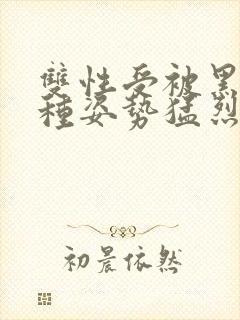 雙性受被黑
種姿勢猛烈
初晨依然